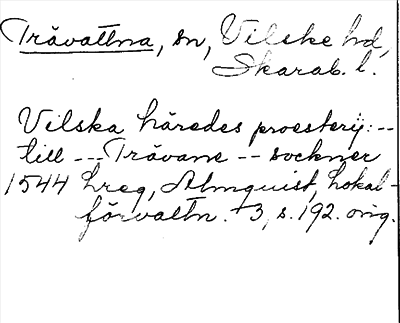 Trävattna, sn, Vilske hd,
Skarab. l.
Vilska häredes proesterij: --
till --- Trävane -- sockner
1544 hreg, Almquist, Lokal-
förvaltn. 3, s. 192. orig.